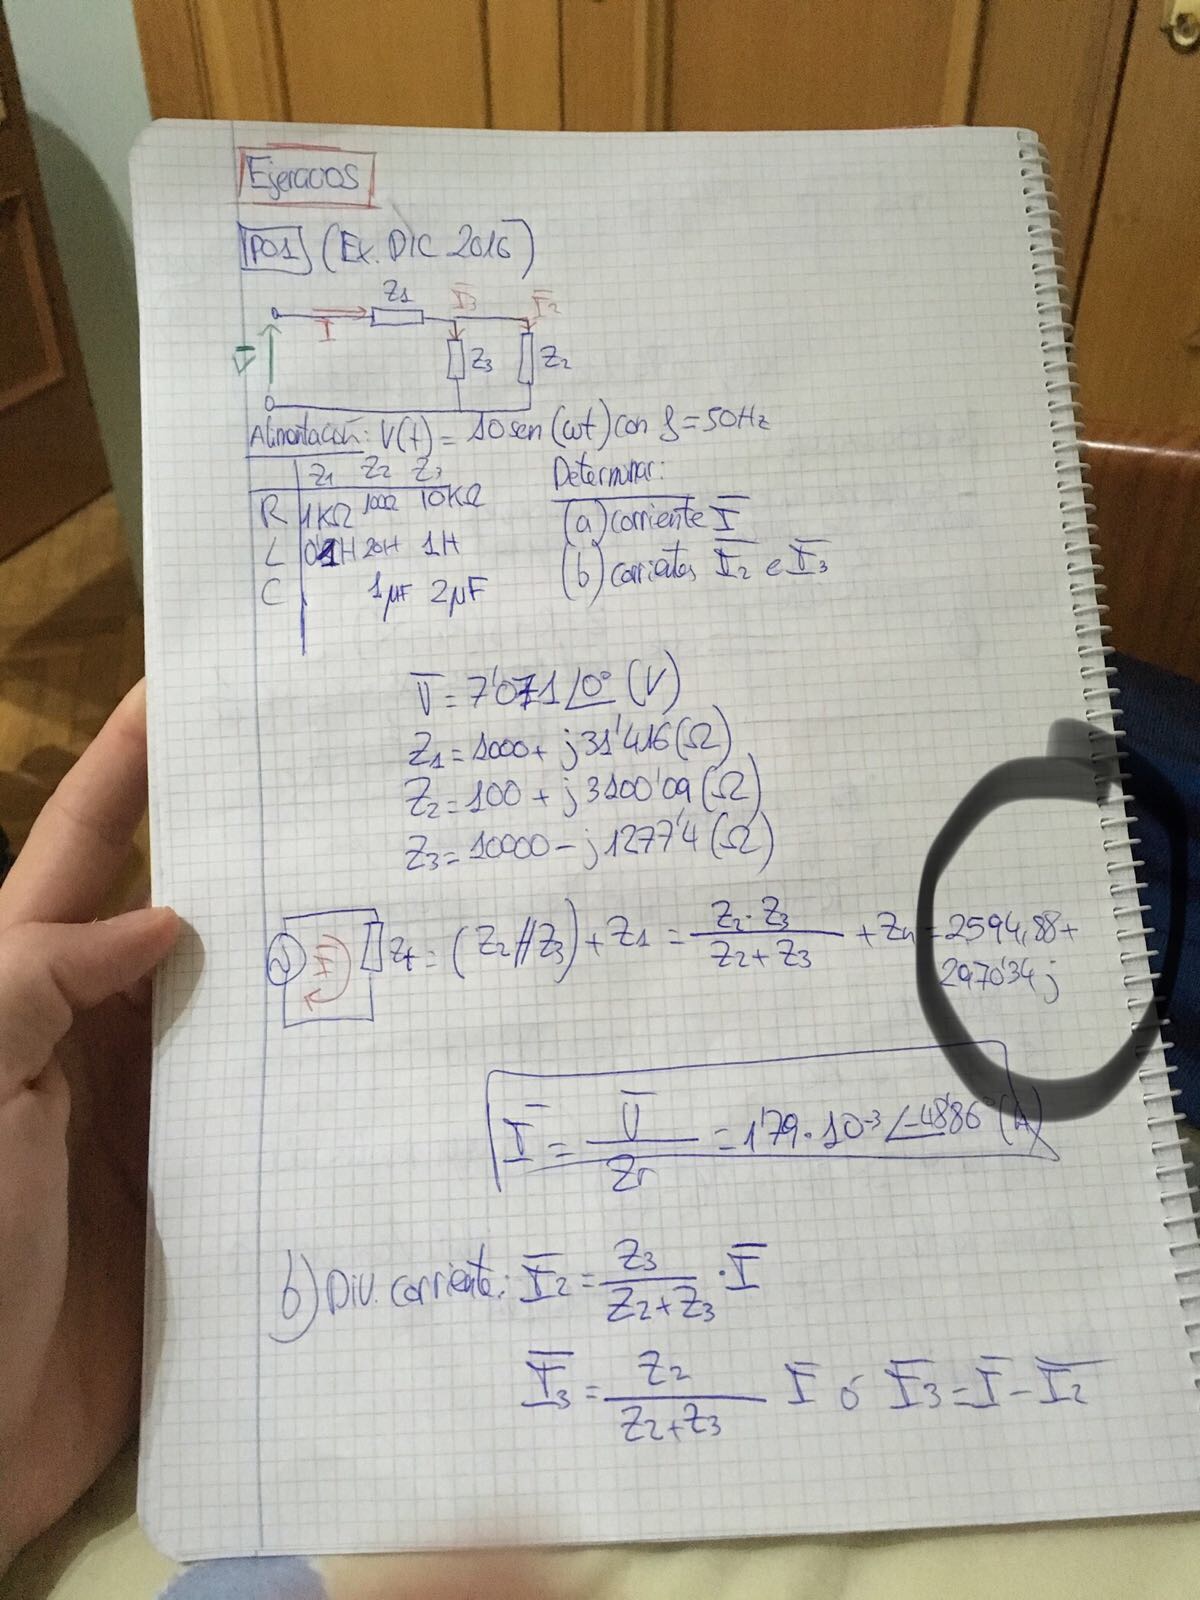 Ejercicios
P01 (Ex. DIC 2016)
Z1 I3 I2
I
V Z3 Z2
Alimentación: V(t) = 10 sen(ωt) con f = 50Hz
Z1 Z2 Z3 Determinar:
R 1KΩ 100Ω 10KΩ (a) corriente I
L 0'1H 20H 1H (b) corrientes I2 e I3
C 1μF 2μF
V = 7'071 ∠0° (V)
Z1 = 1000 + j31'416 (Ω)
Z2 = 100 + j3100'09 (Ω)
Z3 = 10000 - j1277'4 (Ω)
I Zt = (Z2//Z3) + Z1 = Z2·Z3 / Z2+Z3 + Z1 = 2594,88 +
2970'34 j
I = V / ZT = 1'79 · 10^-3 ∠-48'86° (A)
b) Div. corriente: I2 = Z3 / Z2+Z3 · I
I3 = Z2 / Z2+Z3 I ó I3 = I - I2